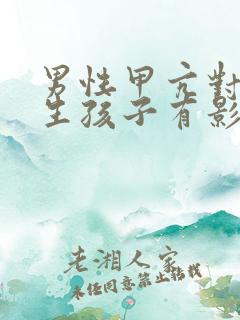 男性甲亢對
生孩子有影
老湘人家
未经同意禁止转载